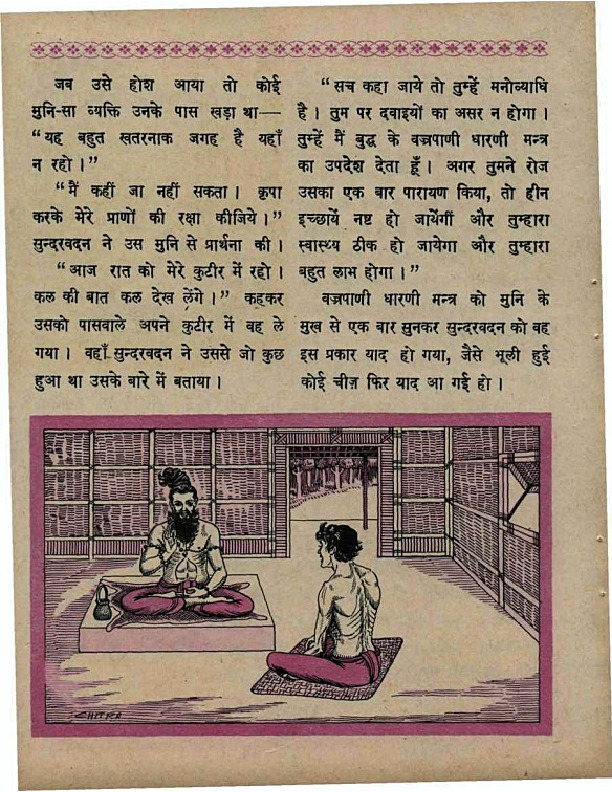 जब उसे होश आया तो कोई
मुनि-सा व्यक्ति उनके पास खड़ा था—
“यह बहुत खतरनाक जगह है यहाँ
न रहो।”
“मैं कहीं जा नहीं सकता। कृपा
करके मेरे प्राणों की रक्षा कीजिये।”
सुन्दरवदन ने उस मुनि से प्रार्थना की।
“आज रात को मेरे कुटीर में रहो।
कल की बात कल देख लेंगे।” कहकर
उसको पासवाले अपने कुटीर में वह ले
गया। वहाँ सुन्दरवदन ने उससे जो कुछ
हुआ था उसके बारे में बताया।
“सच कहा जाये तो तुम्हें मनोव्याधि
है। तुम पर दवाइयों का असर न होगा।
तुम्हें मैं बुद्ध के वज्रपाणी धारणी मन्त्र
का उपदेश देता हूँ। अगर तुमने रोज
उसका एक बार पारायण किया, तो हीन
इच्छायें नष्ट हो जायेंगीं और तुम्हारा
स्वास्थ्य ठीक हो जायेगा और तुम्हारा
बहुत लाभ होगा।”
वज्रपाणी धारणी मन्त्र को मुनि के
मुख से एक बार सुनकर सुन्दरवदन को वह
इस प्रकार याद हो गया, जैसे भूली हुई
कोई चीज़ फिर याद आ गई हो।
CHITRA